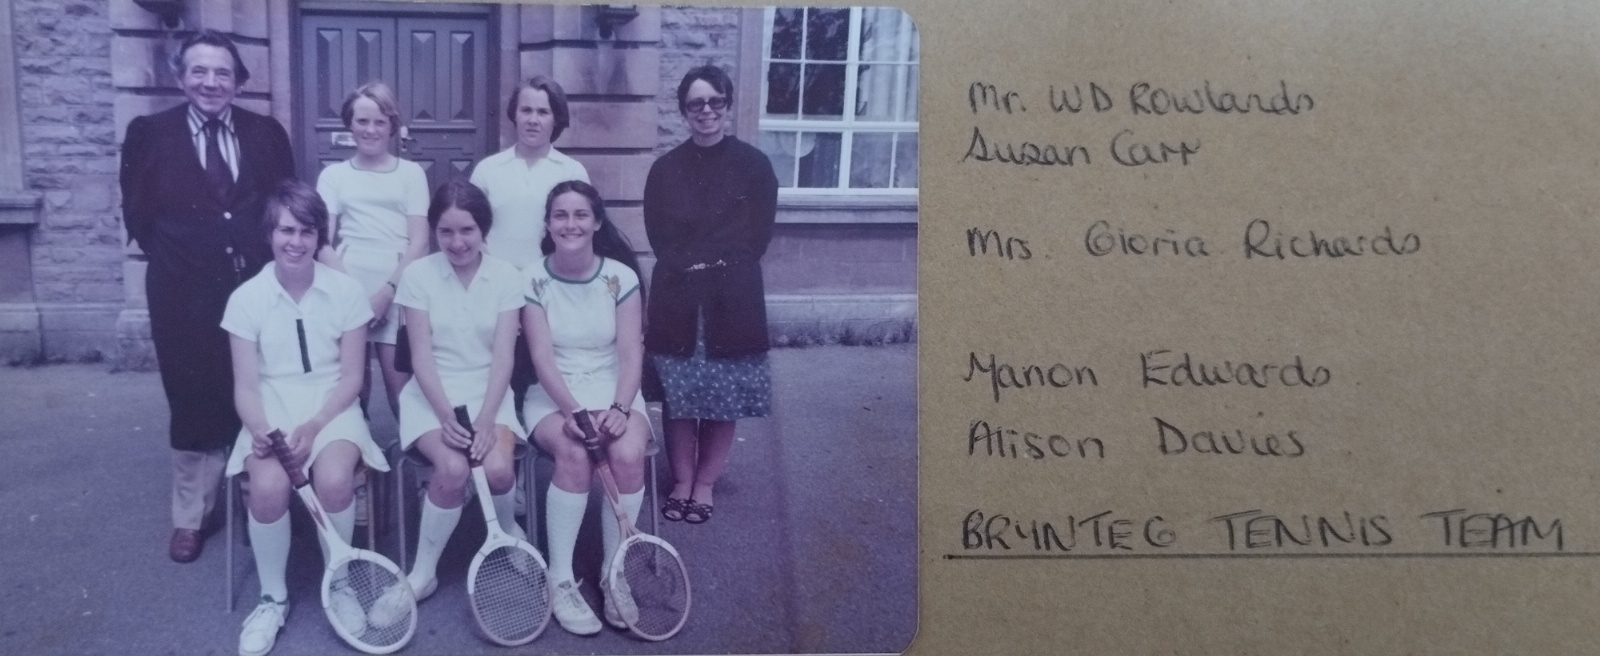 Mr. WD Rowlands
Susan Carr
Mrs. Gloria Richards
Manon Edwards
Alison Davies
BRYNTEG TENNIS TEAM